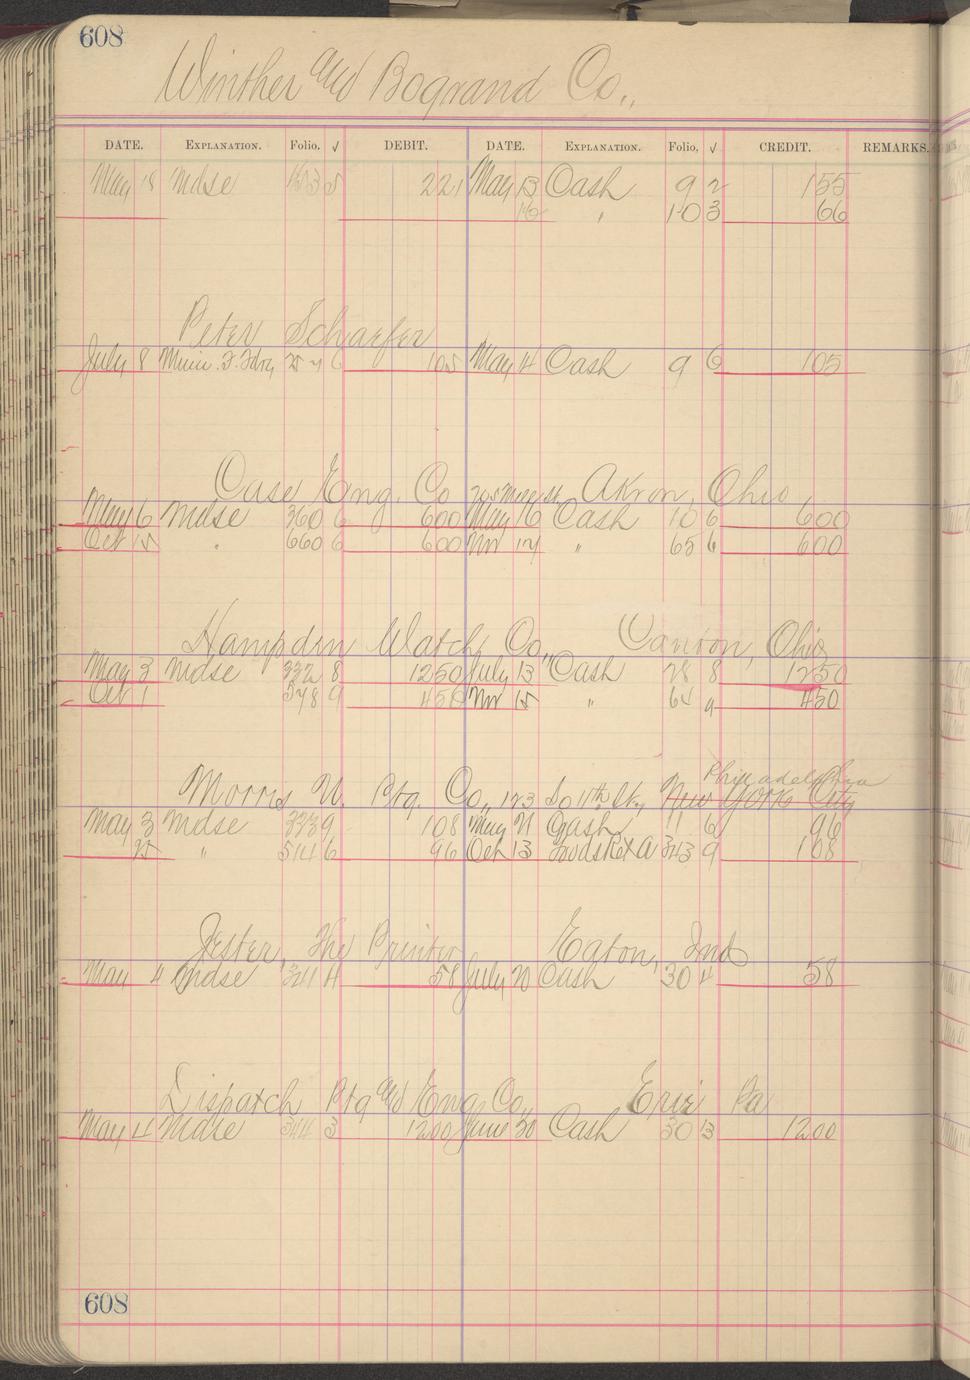 608
Winther and Bogrand Co.,
DATE. EXPLANATION. Folio. √ DEBIT. DATE. EXPLANATION. Folio. √ CREDIT. REMARKS.
May 18 Mdse 221 May 13 Cash 9 2 155
16 " 10 3 66
Peter Schaefer
July 8 6 105 May 14 Cash 9 6 105
Case Eng. Co Akron, Ohio
May 6 Mdse 360 6 600 May 16 Cash 10 6 600
Oct 15 " 660 6 600 Nov 17 " 65 6 600
Hampden Watch Co., Canton, Ohio
May 3 Mdse 332 8 1250 July 13 Cash 28 8 1250
Oct 1 578 9 450 Nov 15 " 64 9 450
Philadelphia
Morris U. Ptg. Co., 123 So 11th St., New York City
May 3 Mdse 333 9 108 May 21 Cash 11 6 96
25 " 514 6 96 Oct 13 343 9 108
Jester, The Printer Eaton, Ind
May 4 Mdse 341 4 58 July 20 Cash 30 4 58
Dispatch Ptg and Eng Co., Erie Pa
May 4 Mdse 344 3 1200 June 30 Cash 30 3 1200
608